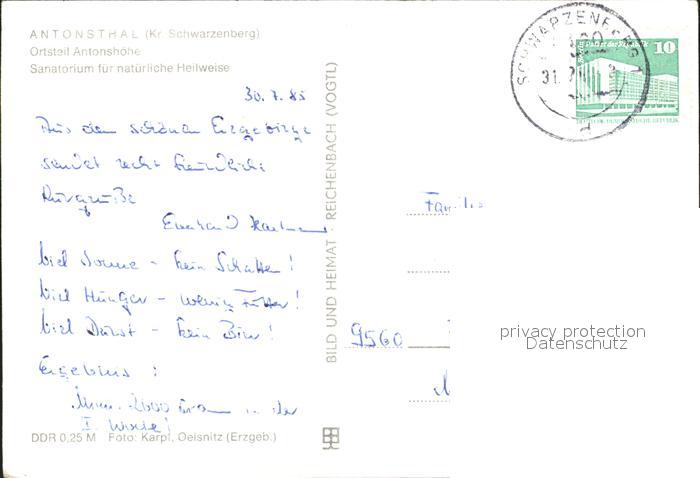 ANTONSTHAL (Kr. Schwarzenberg)
Ortsteil Antonshöhe
Sanatorium für natürliche Heilweise
30.7.85
Aus dem schönen Erzgebirge
sendet recht freundliche
Kurgrüße
viel Sonne - kein Schatten!
viel Hunger - wenig Futter!
viel Durst - kein Bier!
Ergebnis:
2000 Gramm in der
I. Woche!
DDR 0,25 M Foto: Karpf, Oelsnitz (Erzgeb.)
BILD UND HEIMAT · REICHENBACH (VOGTL)
SCHWARZENBERG 1
31.7
10
Familie
9560
privacy protection
Datenschutz